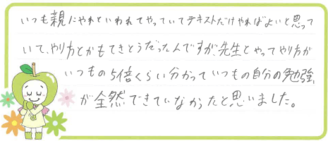 いつも親にやれといわれてやっていてテキストだけやればよいと思って
いて、やり方とかもてきとうだったんですが、先生とやってやり方が
いつもの5倍くらい分かっていつもの自分の勉強
が全然できていなかったと思いました。